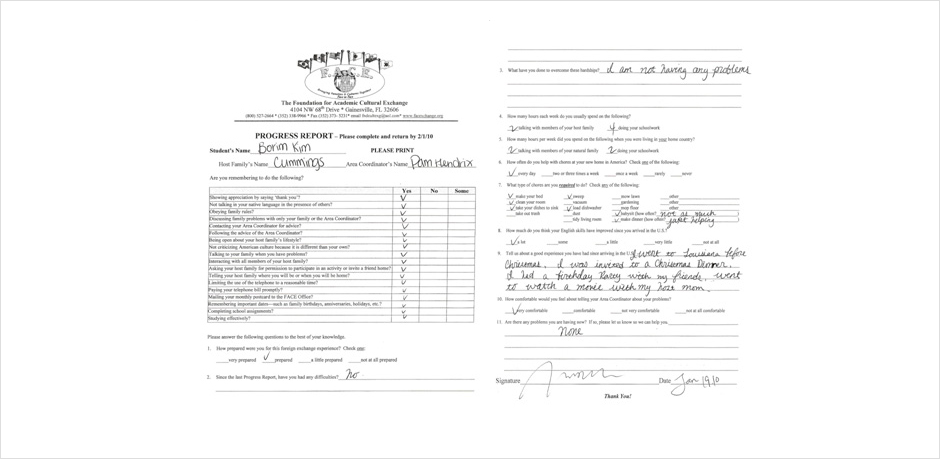 F.A.C.E.
The Foundation for Academic Cultural Exchange
4104 NW 68th Drive * Gainesville, FL 32606
PROGRESS REPORT – Please complete and return by 2/1/10
Student's Name Borim Kim PLEASE PRINT
Host Family's Name Cummings Area Coordinator's Name Pam Hendrix
Are you remembering to do the following?
Yes No Some
Showing appreciation by saying 'thank you'?
Not talking in your native language in the presence of others?
Obeying family rules?
Discussing family problems with only your family or the Area Coordinator?
Contacting your Area Coordinator for advice?
Following the advice of the Area Coordinator?
Being open about your host family's lifestyle?
Not criticizing American culture because it is different than your own?
Talking to your family when you have problems?
Interacting with all members of your host family?
Asking your host family for permission to participate in an activity or invite a friend home?
Telling your host family where you will be or when you will be home?
Limiting the use of the telephone to a reasonable time?
Paying your telephone bill promptly?
Mailing your monthly postcard to the FACE Office?
Remembering important dates—such as family birthdays, anniversaries, holidays, etc.?
Completing school assignments?
Studying effectively?
Please answer the following questions to the best of your knowledge.
1. How prepared were you for this foreign exchange experience? Check one:
very prepared ✓ prepared a little prepared not at all prepared
2. Since the last Progress Report, have you had any difficulties? No
3. What have you done to overcome these hardships? I am not having any problems
4. How many hours each week do you usually spend on the following?
2 talking with members of your host family 4 doing your schoolwork
5. How many hours per week did you spend on the following when you were living in your home country?
2 talking with members of your natural family 2 doing your schoolwork
6. How often do you help with chores at your new home in America? Check one of the following:
✓ every day two or three times a week once a week rarely never
7. What type of chores are you required to do? Check any of the following:
make your bed sweep mow lawn other
clean your room vacuum gardening other
take your dishes to sink load dishwasher mop floor other
take out trash dust babysit (how often? not as much)
tidy living room make dinner (how often? just helping)
8. How much do you think your English skills have improved since you arrived in the U.S.?
✓ a lot some a little very little not at all
9. Tell us about a good experience you have had since arriving in the U.S. I went to Louisiana before
Christmas, I was invited to a Christmas Dinner,
I had a birthday Party with my friends, went
to watch a movie with my host mom.
10. How comfortable would you feel about telling your Area Coordinator about your problems?
✓ very comfortable comfortable not very comfortable not at all comfortable
11. Are there any problems you are having now? If so, please let us know so we can help you.
None
Signature Date Jan 19 10
Thank You!